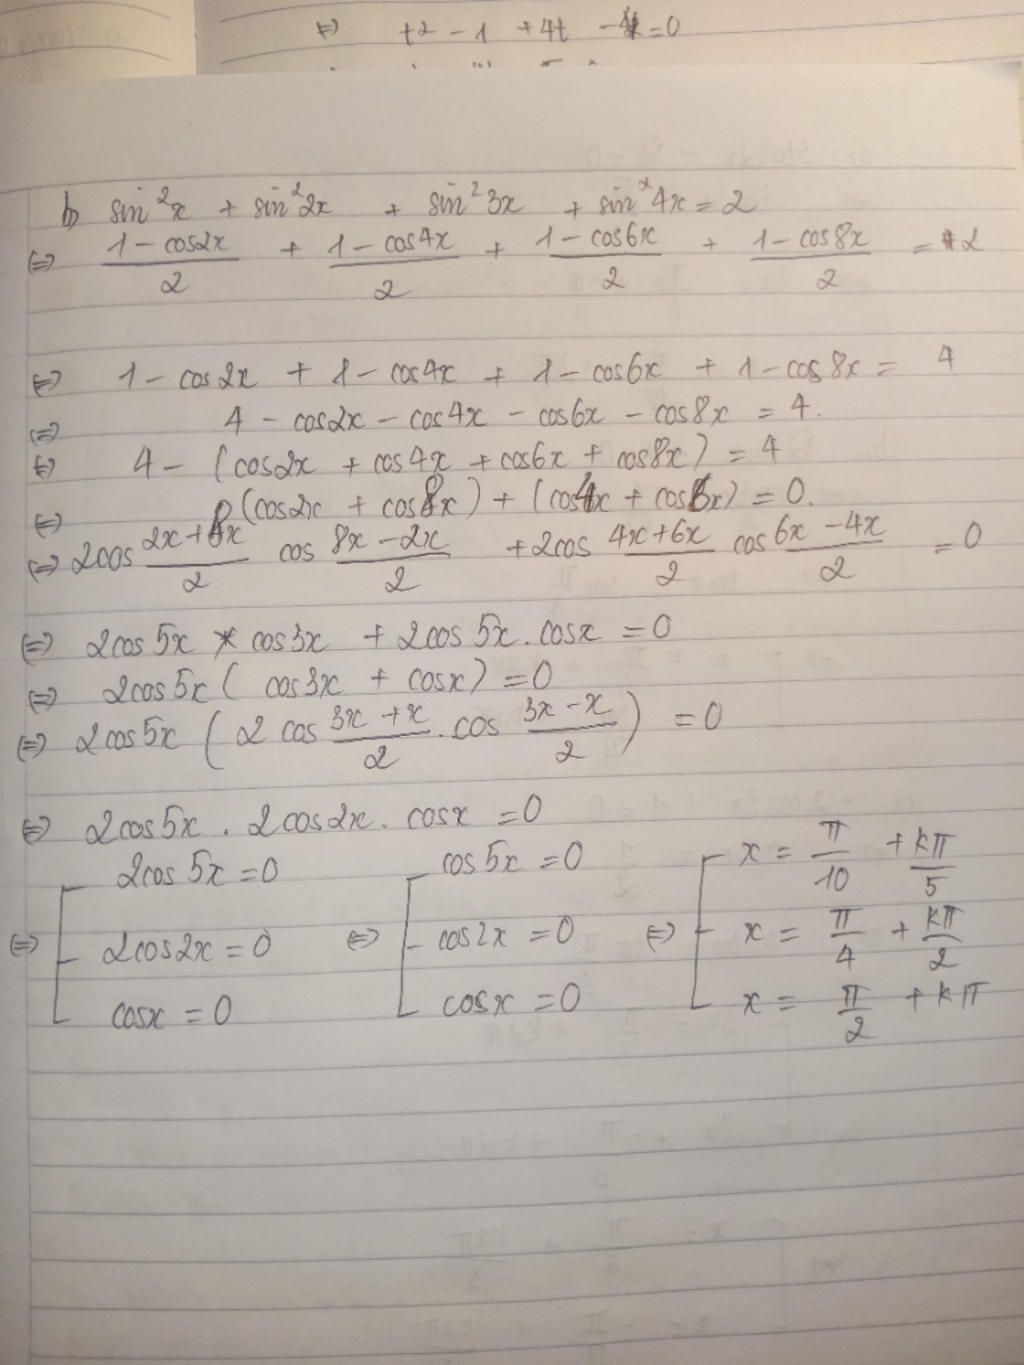 ⇔ t² - 1 + 4t - 4 = 0
b, sin²x + sin²2x + sin²3x + sin²4x = 2
⇔ (1 - cos2x)/2 + (1 - cos4x)/2 + (1 - cos6x)/2 + (1 - cos8x)/2 = 2
⇔ 1 - cos2x + 1 - cos4x + 1 - cos6x + 1 - cos8x = 4
⇔ 4 - cos2x - cos4x - cos6x - cos8x = 4.
⇔ 4 - (cos2x + cos4x + cos6x + cos8x) = 4
⇔ (cos2x + cos8x) + (cos4x + cos6x) = 0.
⇔ 2cos (2x + 8x)/2 cos (8x - 2x)/2 + 2cos (4x + 6x)/2 cos (6x - 4x)/2 = 0
⇔ 2cos5x * cos3x + 2cos5x . cosx = 0
⇔ 2cos5x ( cos3x + cosx) = 0
⇔ 2cos5x ( 2 cos (3x + x)/2 . cos (3x - x)/2 ) = 0
⇔ 2cos5x . 2cos2x . cosx = 0
⇔ [ 2cos5x = 0 ⇔ [ cos5x = 0 ⇔ [ x = π/10 + kπ/5
2cos2x = 0 cos2x = 0 x = π/4 + kπ/2
cosx = 0 cosx = 0 x = π/2 + kπ